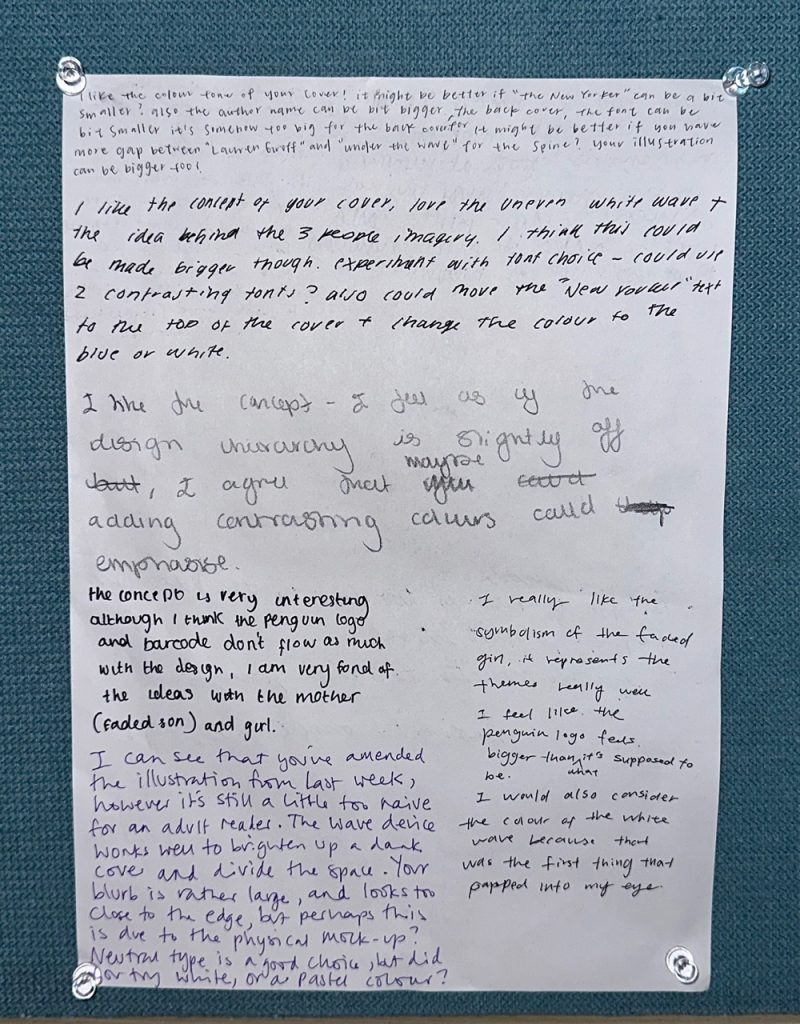 I like the colour tone of your cover! it might be better if "the New Yorker" can be a bit
smaller? also the author name can be bit bigger, the back cover, the font can be
bit smaller it's somehow too big for the back cover, for it might be better if you have
more gap between "Lauren Groff" and "under the wave" for the spine? your illustration
can be bigger too!
I like the concept of your cover, love the uneven white wave +
the idea behind the 3 people imagery. I think this could
be made bigger though. experiment with font choice - could use
2 contrasting fonts? also could move the "New Yorker" text
to the top of the cover + change the colour to the
blue or white.
I like the concept - I feel as if the
design hierarchy is slightly off
but, I agree that maybe
adding contrasting colours could
emphasise.
the concept is very interesting
although I think the penguin logo
and barcode don't flow as much
with the design, I am very fond of
the ideas with the mother
(faded son) and girl.
I can see that you've amended
the illustration from last week,
however it's still a little too naive
for an adult reader. The wave device
works well to brighten up a dark
cover and divide the space. Your
blurb is rather large, and looks too
close to the edge, but perhaps this
is due to the physical mock-up?
Neutral type is a good choice, but did
you try white, or a pastel colour?
I really like the
symbolism of the faded
girl, it represents the
themes really well
I feel like the
penguin logo feels
bigger than what it's supposed to
be.
I would also consider
the colour of the white
wave because that
was the first thing that
papped into my eye.